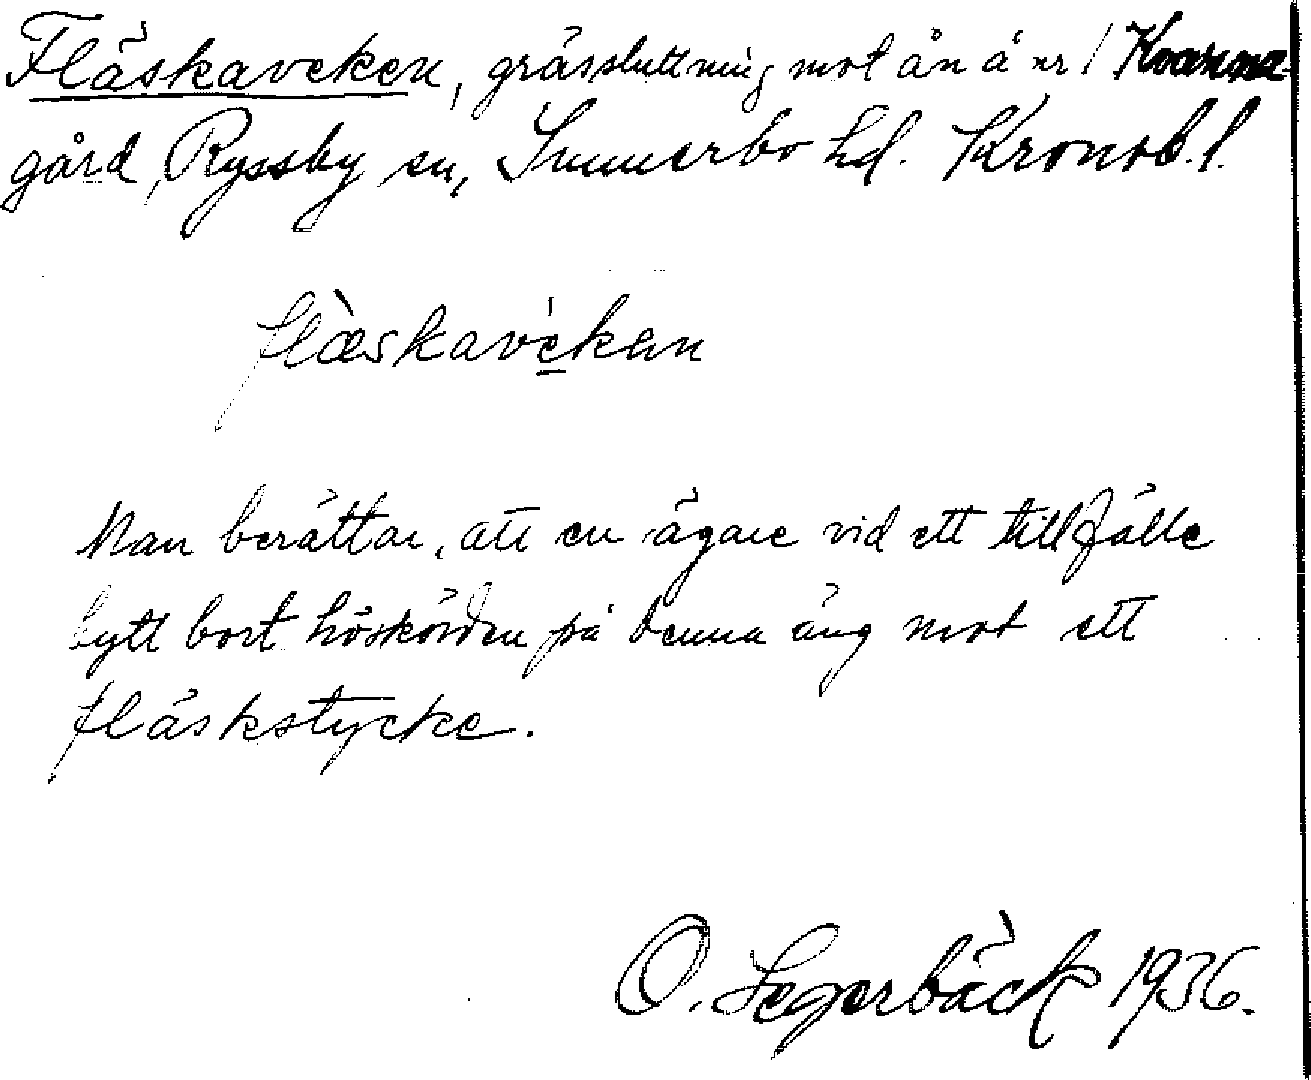 Fläskaveken, grässluttning mot ån å nr 1 Kvarna-
gård, Ryssby sn, Sunnerbo hd. Kronob. l.
flæ̀skavékan
Man berättar, att en ägare vid ett tillfälle
bytt bort höskörden på denna äng mot ett
fläskstycke.
O. Segerbäck 1936.